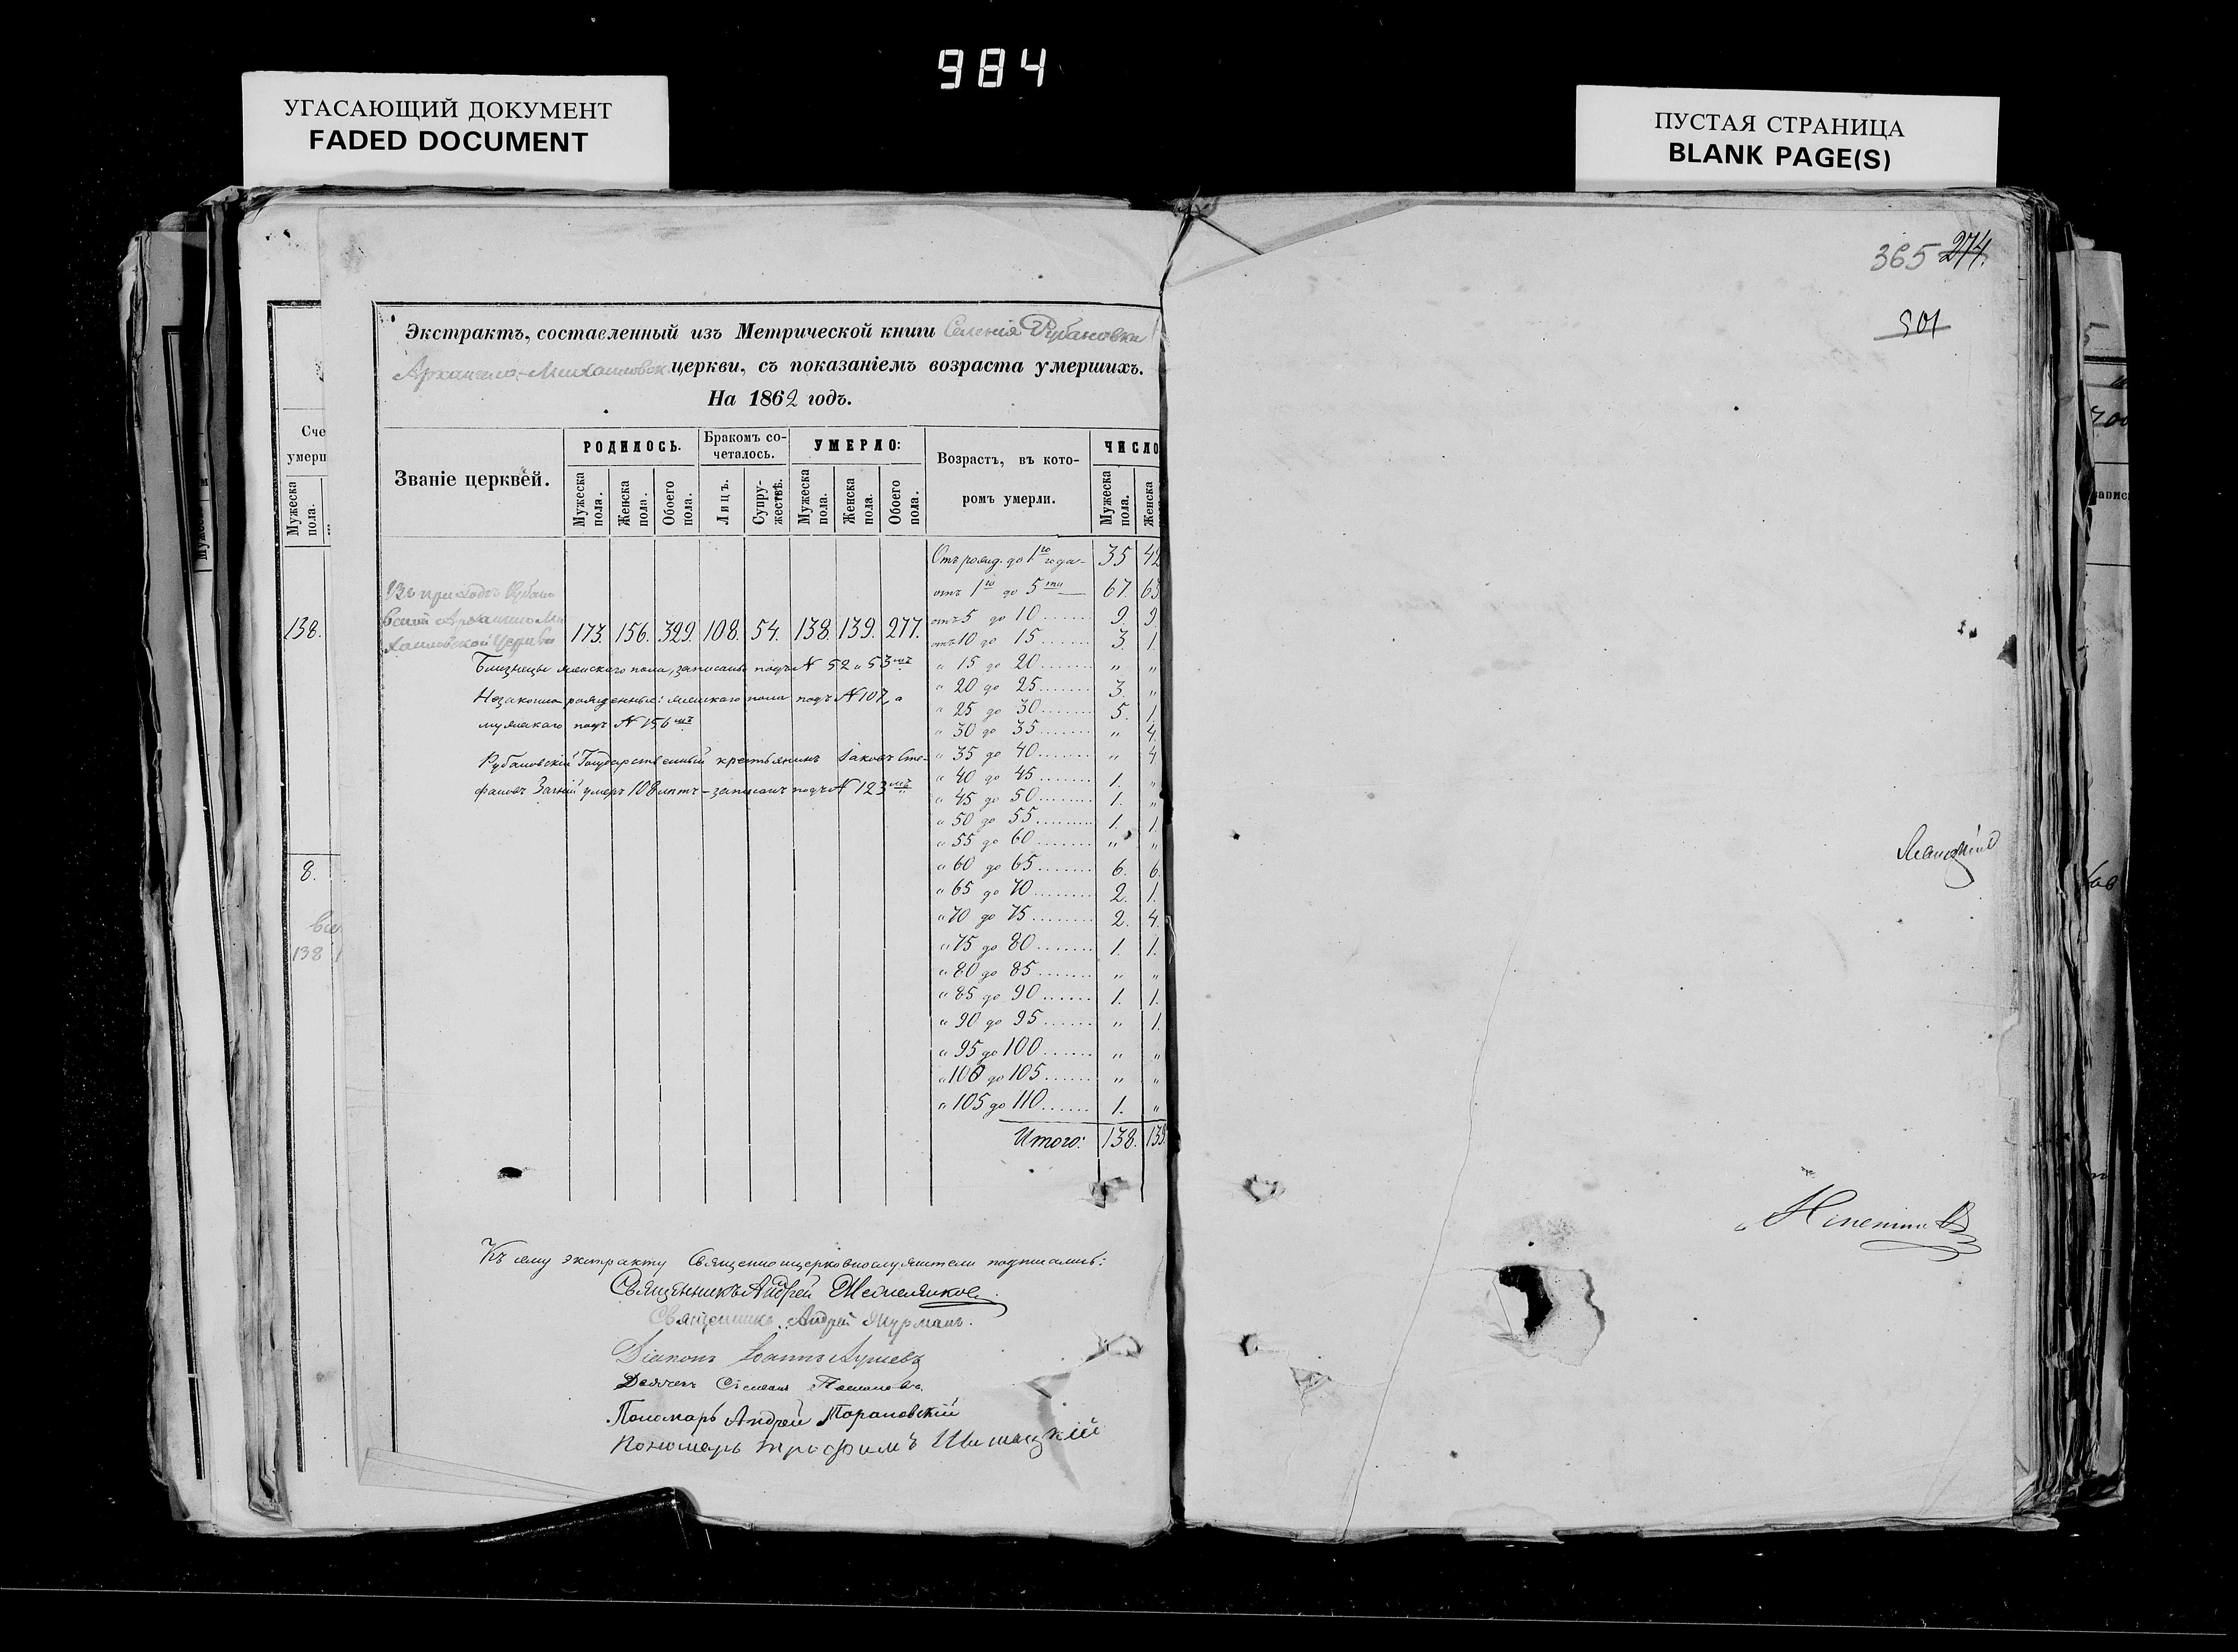 984
УГАСАЮЩИЙ ДОКУМЕНТ
FADED DOCUMENT
ПУСТАЯ СТРАНИЦА
BLANK PAGE(S)
365 274.
501
Сче
умерш
Мужеска пола.
138.
8.
138
Экстрактъ, составленный изъ Метрической книги Селенія Рубановки
Архангело-Михайловск. церкви, съ показаніемъ возраста умершихъ.
На 1862 годъ.
Званіе церквей. РОДИЛОСЬ. Бракомъ сочеталось. УМЕРЛО: Возрастъ, въ которомъ умерли. ЧИСЛО
Мужеска пола. Женска пола. Обоего пола. Лицъ. Супружествъ. Мужеска пола. Женска пола. Обоего пола. Мужеска пола. Женска
Отъ рожд. до 1го года 35 42
отъ 1го до 5ти 67. 63
отъ 5 до 10 9. 9.
Въ приходѣ Рубановской Архангело-Михайловской Церкви 173. 156. 329. 108. 54. 138 139. 277.
отъ 10 до 15 3. 1.
" 15 до 20 " "
" 20 до 25 3. "
" 25 до 30 5. 1.
" 30 до 35 " 4.
" 35 до 40 " 4
" 40 до 45 1. "
" 45 до 50 1. "
" 50 до 55 1. 1.
" 55 до 60 " "
" 60 до 65 6. 6.
" 65 до 70 2. 1.
" 70 до 75 2. 4.
" 75 до 80 1. 1.
" 80 до 85 " "
" 85 до 90 1. 1.
" 90 до 95 " 1.
" 95 до 100 " "
" 100 до 105 " "
" 105 до 110 1. "
Итого: 138. 139.
Близнецы женскаго пола, записаны подъ № 52 и 53мъ
Незаконно рожденные: женскаго пола подъ № 107, а
мужскаго подъ № 156мъ
Рубановскій Государственный крестьянинъ Іаковъ Сте-
фановъ умеръ 108 лѣтъ - записанъ подъ № 123мъ
Къ сему экстракту Священноицерковнослужители подписались:
Священникъ Андрей
Священникъ Андрей
Діаконъ Іоаннъ
Дьячекъ Стефанъ
Пономарь Андрей Тарановскій
Пономарь Трофимъ Шишацкій